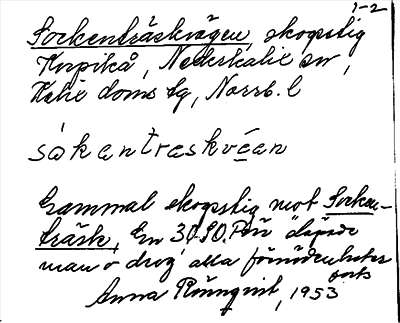 1-2
Sockenträskvägen, skogsstig
Korpikå, Nederkalix sn,
Kalix doms lg, Norrb. l
såkantraskvéan
Gammal skogsstig mot Socken-
träsk. En 30. 50. "släpade
man o drog" alla förnödenheter
Anna Rönnqvist, 1953